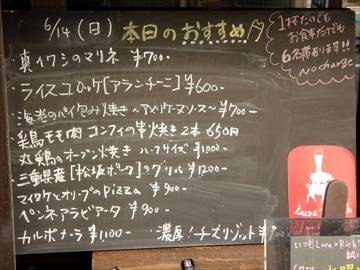 6/14(日) 本日のおすすめ
1杯だけでも
お食事だけでも
6名席あります!!
No charge
・真イワシのマリネ ¥700-
・ライスコロッケ[アランチーニ] ¥600-
・海老のパイ包み焼き～アメリケーヌソース～¥700-
・鶏モモ肉コンフィの串焼き2本 650円
・丸鶏のオーブン焼き ハーフサイズ ¥1,000-
・三重県産[松坂ポーク]のグリル ¥1200-
・マイワシとオリーブのPizza ¥900-
・ペンネアラビアータ ¥900-
・カルボナーラ ¥1,100- ・濃厚!チーズリゾット
Luca
いつもLuca